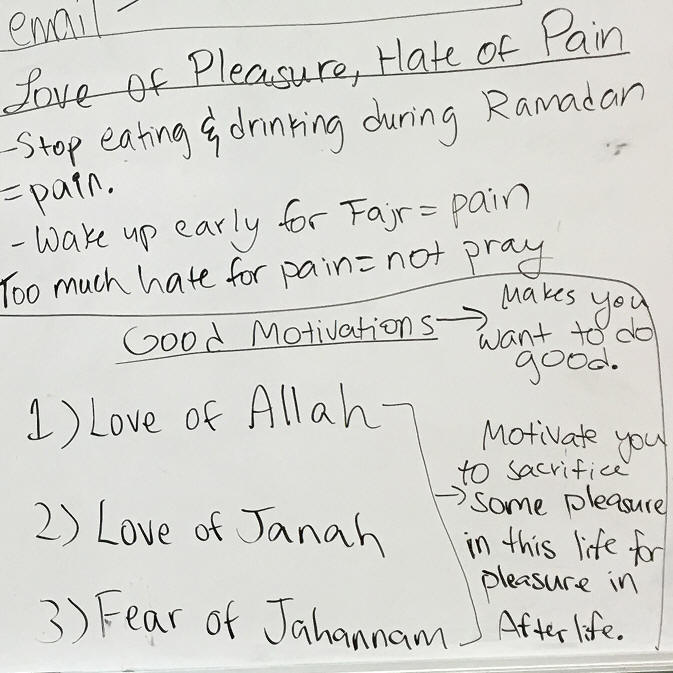 email
Love of Pleasure, Hate of Pain
-Stop eating & drinking during Ramadan
= pain.
-Wake up early for Fajr = pain
Too much hate for pain = not pray
Good Motivations → Makes you
want to do
good.
1) Love of Allah
2) Love of Janah
3) Fear of Jahannam
→ Motivate you
to sacrifice
some pleasure
in this life for
pleasure in
Afterlife.